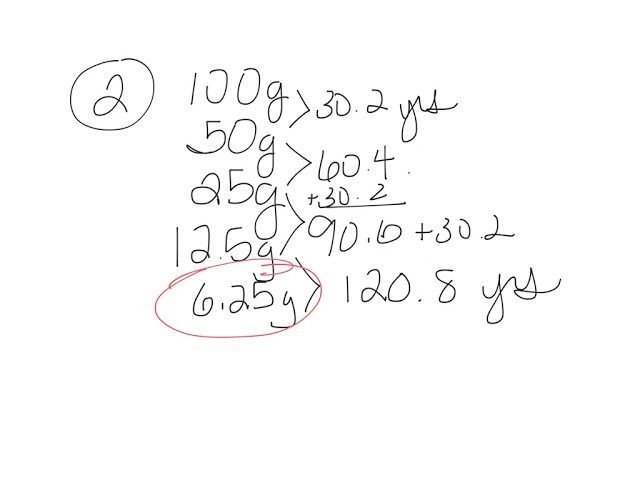 2
100g > 30.2 yrs
50g > 60.4
25g +30.2
12.5g > 90.6 +30.2
6.25g > 120.8 yrs